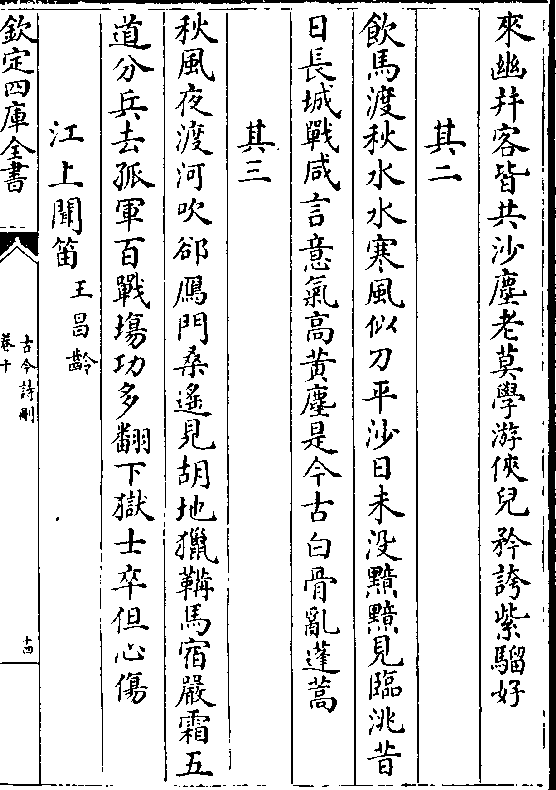 來幽并客皆共沙塵老莫學游俠兒矜誇紫騮好
其二
飲馬渡秋水水寒風似刀平沙日未没黯黯見臨洮昔
日長城戰咸言意氣高黄塵是今古白骨亂蓬蒿
其三
秋風夜渡河吹郤鴈門桑遙見胡地獵鞲馬宿嚴霜五
道分兵去孤軍百戰塲功多翻下獄士卒但心傷
江上聞笛
王昌齡
欽定四庫全書
古今詩刪
卷十
十四